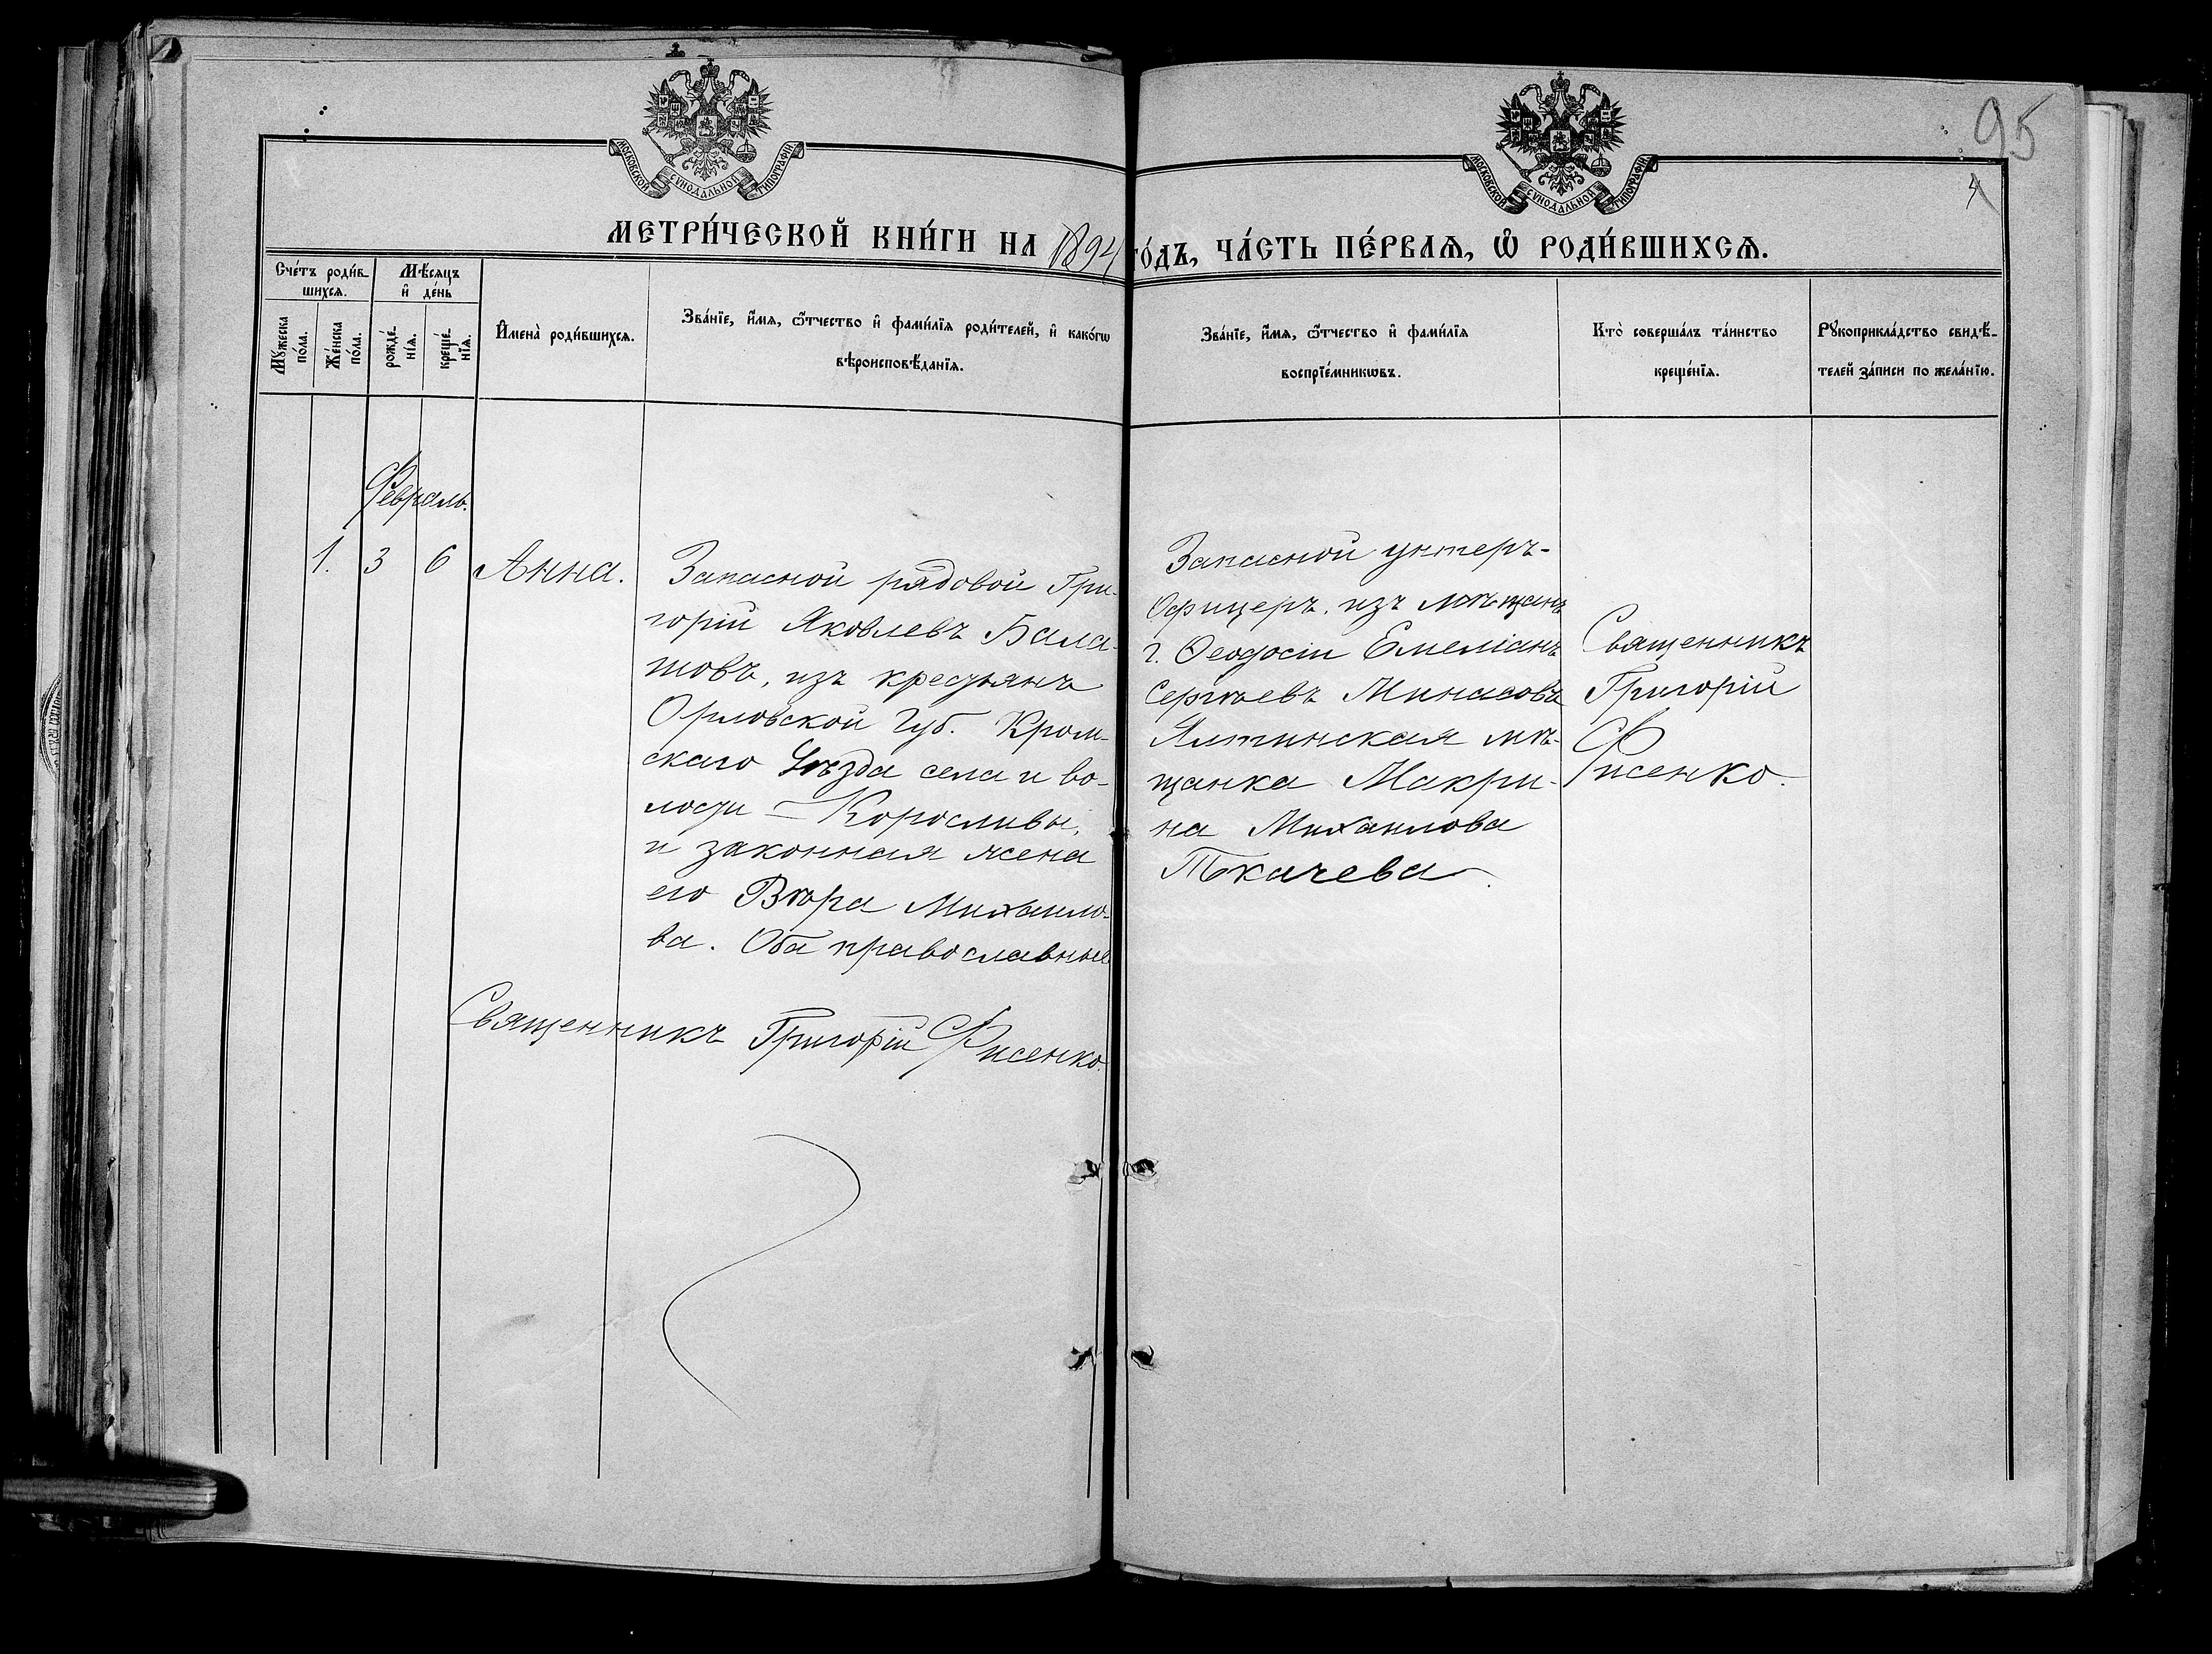 МОСКОВСКОЙ СѴНОДАЛЬНОЙ ТИПОГРАФІИ
МОСКОВСКОЙ СѴНОДАЛЬНОЙ ТИПОГРАФІИ
95
4
МЕТРИ́ЧЕСКОЙ КНИ́ГИ НА 1894 ГО́ДЪ, ЧА́СТЬ ПЕ́РВАѦ, Ѡ҆ РОДИ́ВШИХСѦ.
Сче́тъ роди́в-
шихсѧ.
Мѣ́сяцъ
и҆ де́нь
Мꙋ́жеска
по́ла.
Же́нска
по́ла.
рожде́-
нїѧ.
креще́-
нїѧ.
И҆мена̀ роди́вшихсѧ.
Зва́нїе, и҆́мѧ, ѻ҆́тчество и҆ фами́лїѧ роди́телей, и҆ како́гѡ
вѣроисповѣ́данїѧ.
Зва́нїе, и҆́мѧ, ѻ҆́тчество и҆ фами́лїѧ
воспрїе́мникѡвъ.
Кто̀ соверша́лъ та́инство
креще́нїѧ.
Рꙋкоприкла́дство свидѣ́-
телей за́писи по жела́нїю.
Февраль.
1. 3 6 Анна.
Запасной рядовой Гри-
горій Яковлевъ Бала-
шовъ, изъ крестьянъ
Орловской Губ. Кром-
скаго Уѣзда села и во-
лости – Коросливы,
и законная жена
его Вѣра Михаило-
ва. Оба православные
Запасной унтеръ-
Офицеръ, изъ мѣщанъ
г. Ѳеодосіи Емеліанъ
Сергѣевъ Минасовъ
Ялтинская мѣ-
щанка Макри-
на Михаилова
Ткачева
Священникъ
Григорій
Фисенко.
Священникъ Григорій Фисенко.